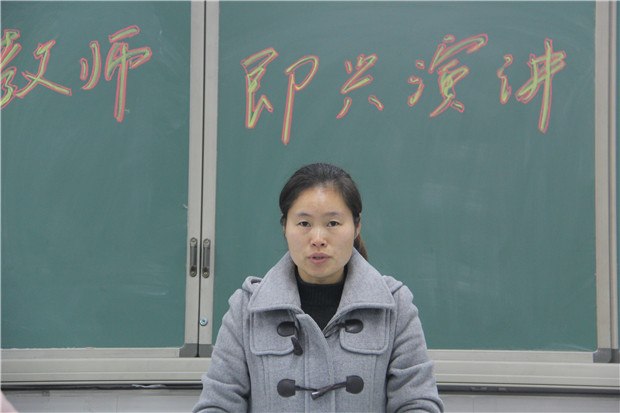 教师 即兴演讲